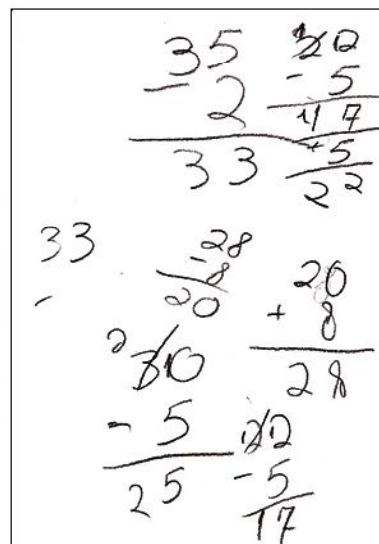 35
- 2
33
12
- 5
17
+ 5
22
33
-
- 28
8
20
20
+ 8
28
2 10
- 5
25
12
- 5
17